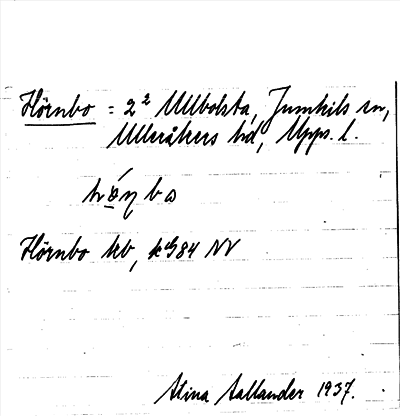 Hörnbo = 2² Ullbolsta, Jumkils sn,
Ulleråkers hd, Upps. l.
Hörnbo kb, k 84 NV
Stina Sallander 1937.